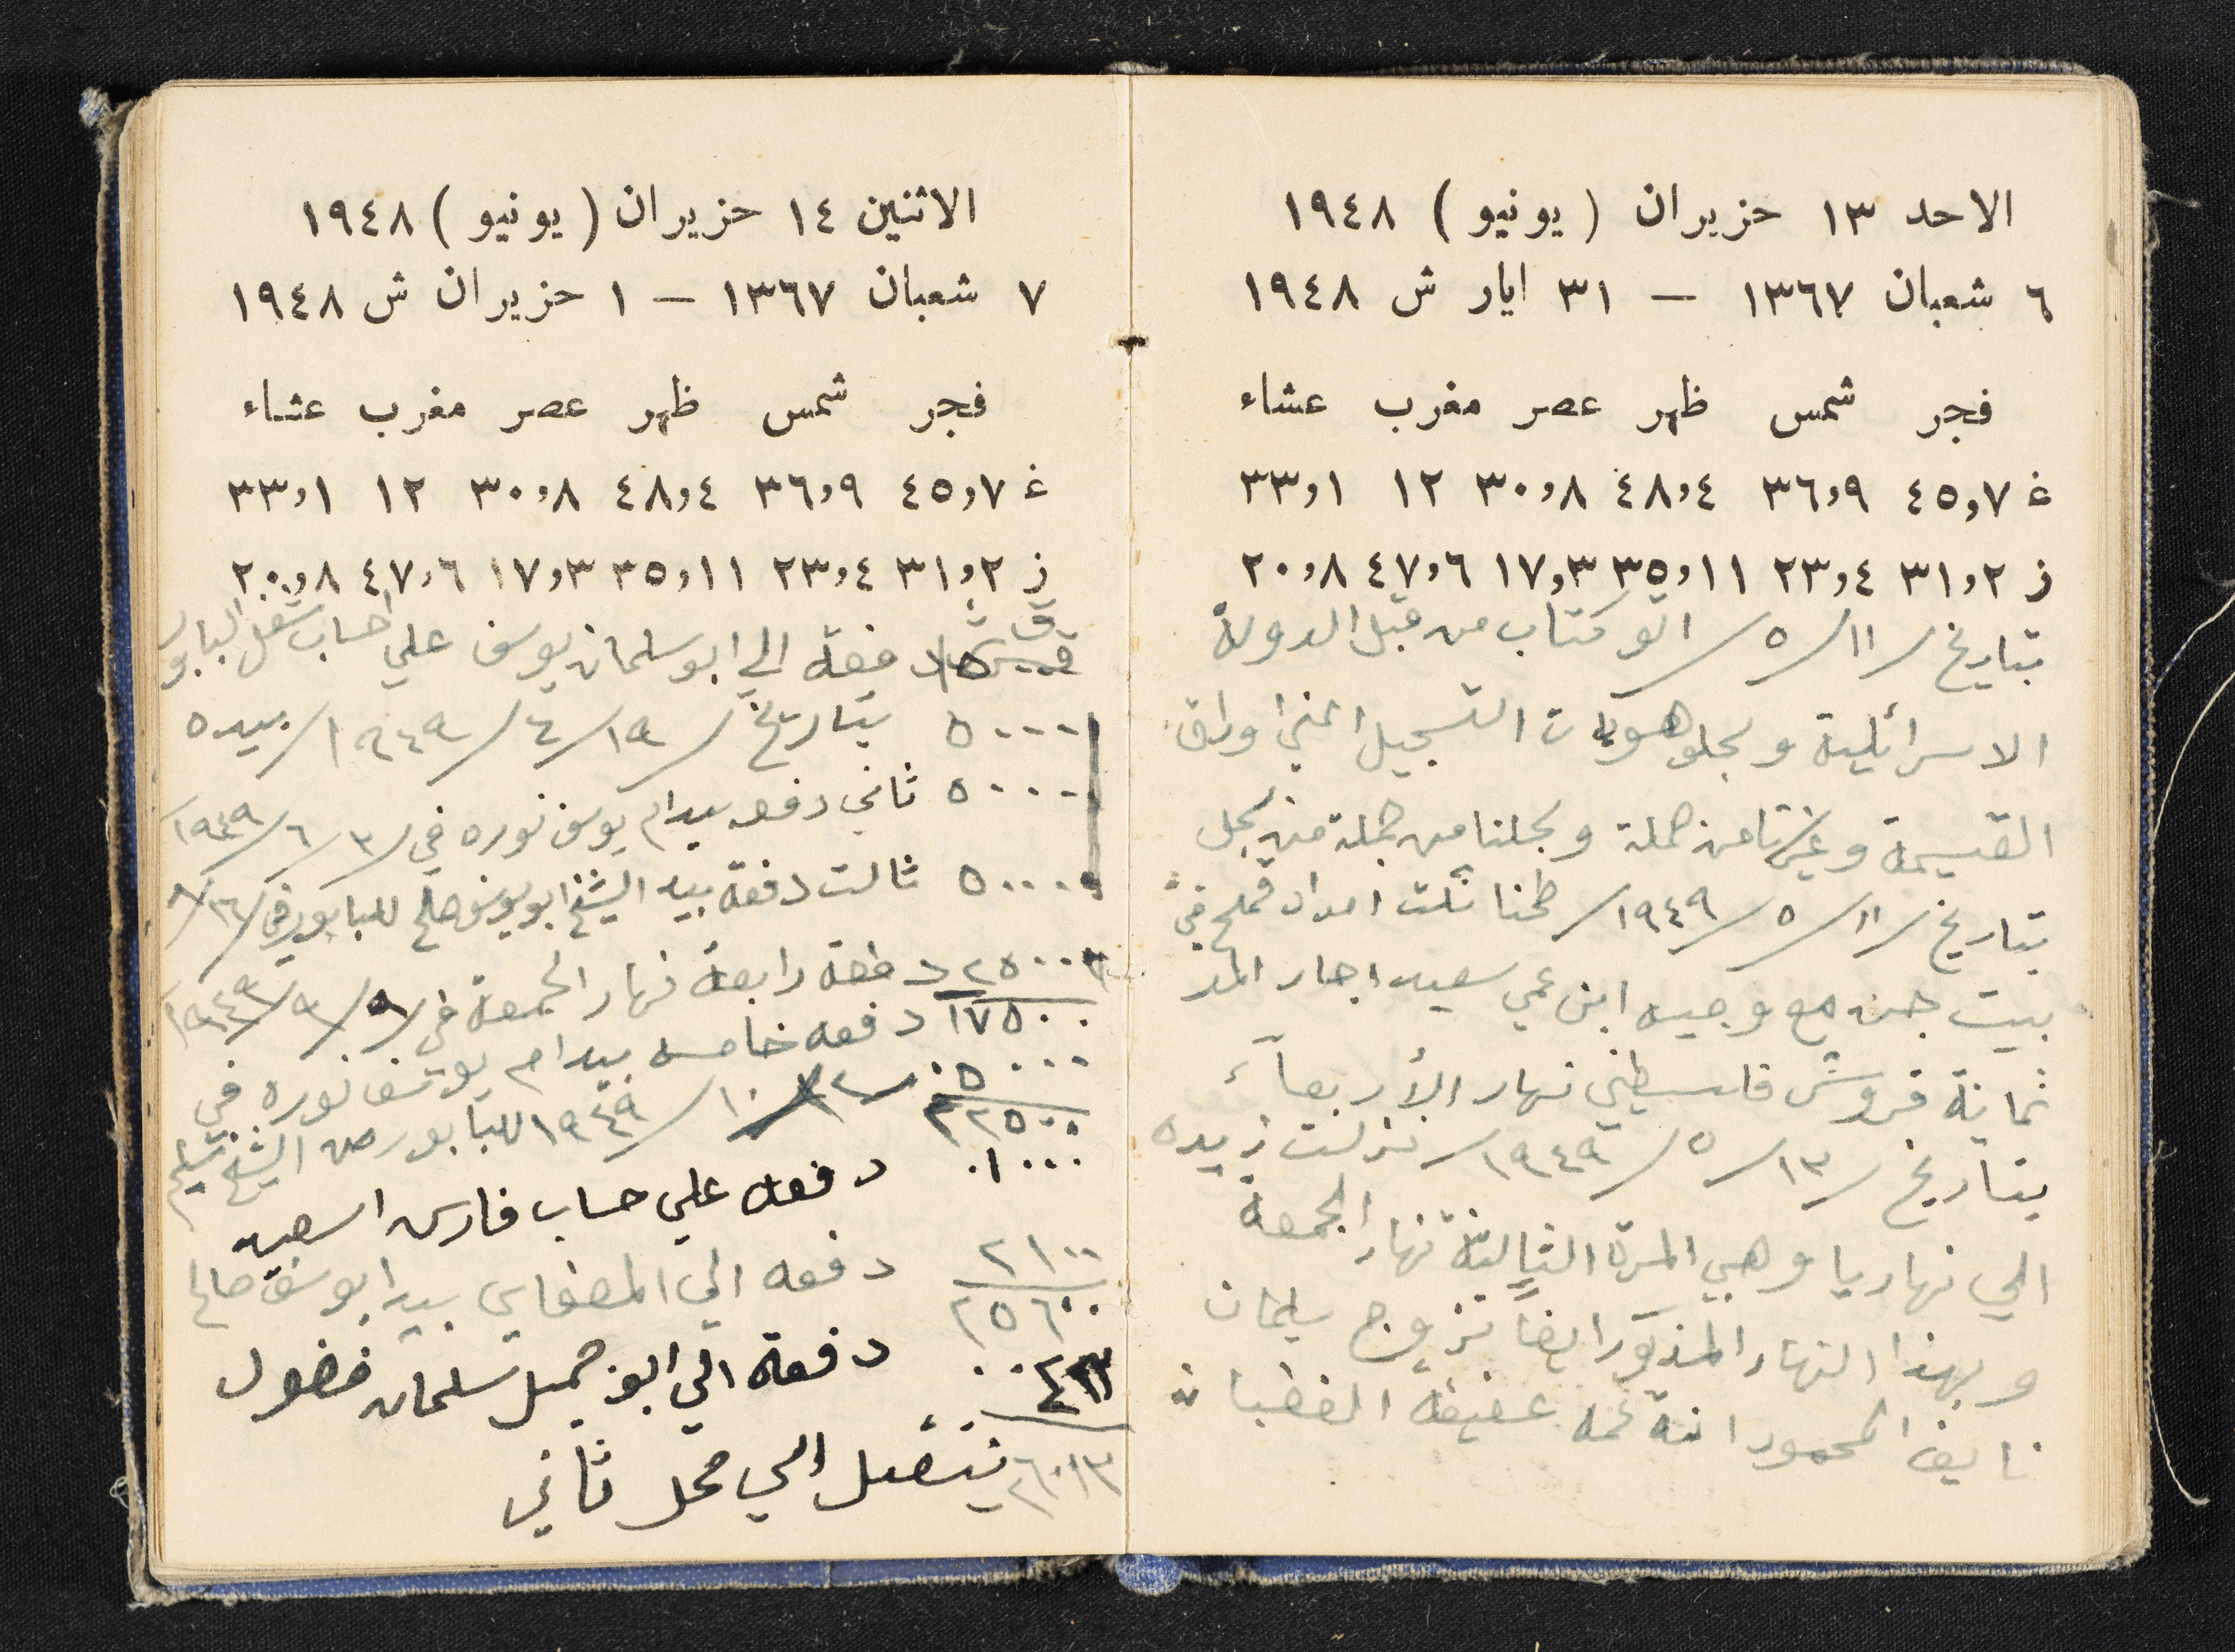 الاحد ١٣ حزيران (يونيو) ١٩٤٨
٦ شعبان ١٣٦٧ — ٣١ ايار ش ١٩٤٨
فجر شمس ظهر عصر مغرب عشاء
غ ٤٥,٧ ٣٦,٩ ٤٨,٤ ٣٠,٨ ١٢ ٣٣,١
ز ٣١,٢ ٢٣,٤ ٣٥,١١ ١٧,٣ ٤٧,٦ ٢٠,٨
بتاريخ /١١/ ٥/ اتو كتاب من قبل الدولة
الاسرائلية وسجلو هويات التسجيل اعني اوراق
القسيمة و من حملة وسجلنا من جملة من سجل
بتاريخ /١١/ ٥/ ١٩٤٩/ طحنا ثلث امداد قمح في
بيت جن مع وجيه ابن عمي سعيد اجار المد
ثمانة قروش فلسطيني نهار الأربعاء
بتاريخ /١٣/ ٥/ ١٩٤٩/ نزلت زيده
الي نهاريا وهي المرة الثالثة نهار الجمعة
وبهذا النهار المذكور ايضاً تزوج سلمان
نايف المحمود ابنة عمه عفيفة الغضبان
الاثنين ١٤ حزيران (يونيو) ١٩٤٨
٧ شعبان ١٣٦٧ — ١ حزيران ش ١٩٤٨
فجر شمس ظهر عصر مغرب عشاء
غ ٤٥,٧ ٣٦,٩ ٤٨,٤ ٣٠,٨ ١٢ ٣٣,١
ز ٣١,٢ ٢٣,٤ ٣٥,١١ ١٧,٣ ٤٧,٦ ٢٠,٨
دفعة الي ابو سلمان يوسف علي احساب شغل البابور
٥٠٠٠ بتاريخ /١٩/ ٤/ ١٩٤٩/ بيده
٥٠٠٠ ثاني دفعه بيد ام يوسف نوره في /٣/ ٦/ ١٩٤٩
٥٠٠٠ ثالت دفعة بيد الشيخ ابو يوسف صالح للبابور في /٢٦/ ٨
٢٥٠٠ دفعة رابعة نهار الجمعة في /٩/ ٩/ ١٩٤٩
١٧٥٠٠ دفعه خامسه بيد ام يوسف نوره في
٥٠٠٠ /١٠/ ١٩٤٩ للبابور من الشيخ
٢٢٥٠٠
١٠٠٠ دفعه علي حساب فارس اسعيد
٢١٠٠ دفعه الي المصفاي بيد ابو يوسف صالح
٢٥٦٠٠
دفعة الي ابو جميل سلمان فضول
٢٦٠١٣ ننتقل الي محل ثاني